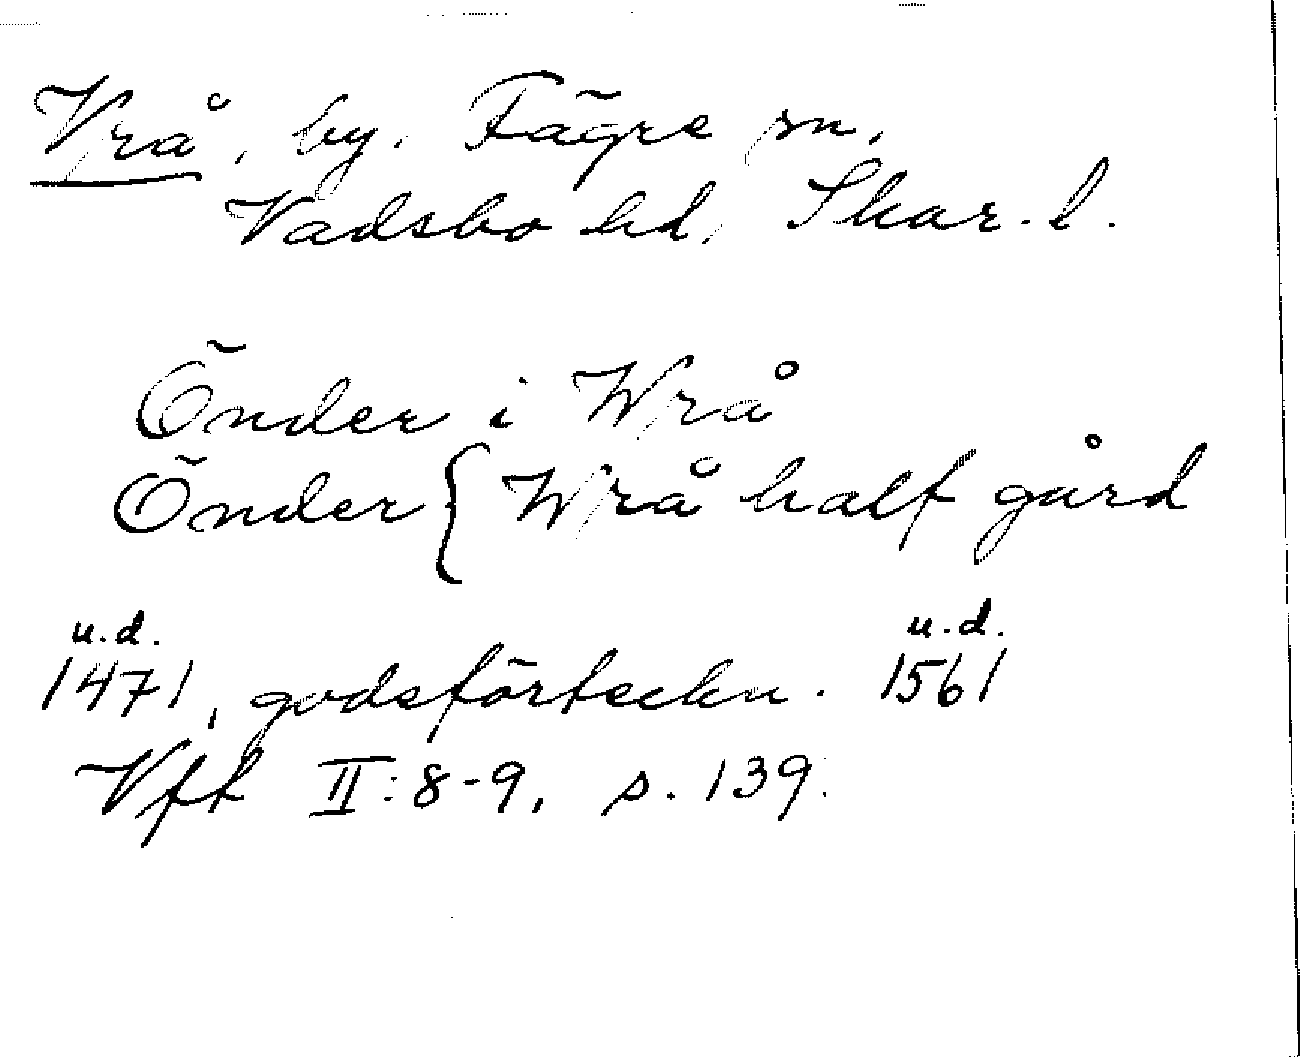 Vrå, by. Fägre sn,
Vadsbo hd, Skar. l.
Önder i Wrå
Önder { Wrå half gård
u.d. u.d.
1471, godsförteckn. 1561
Vft II:8-9, s. 139.